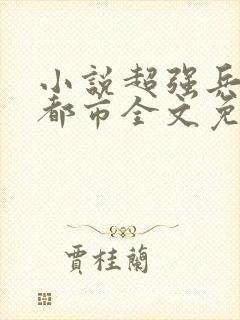 小説超强兵
都市全文免
賈桂蘭